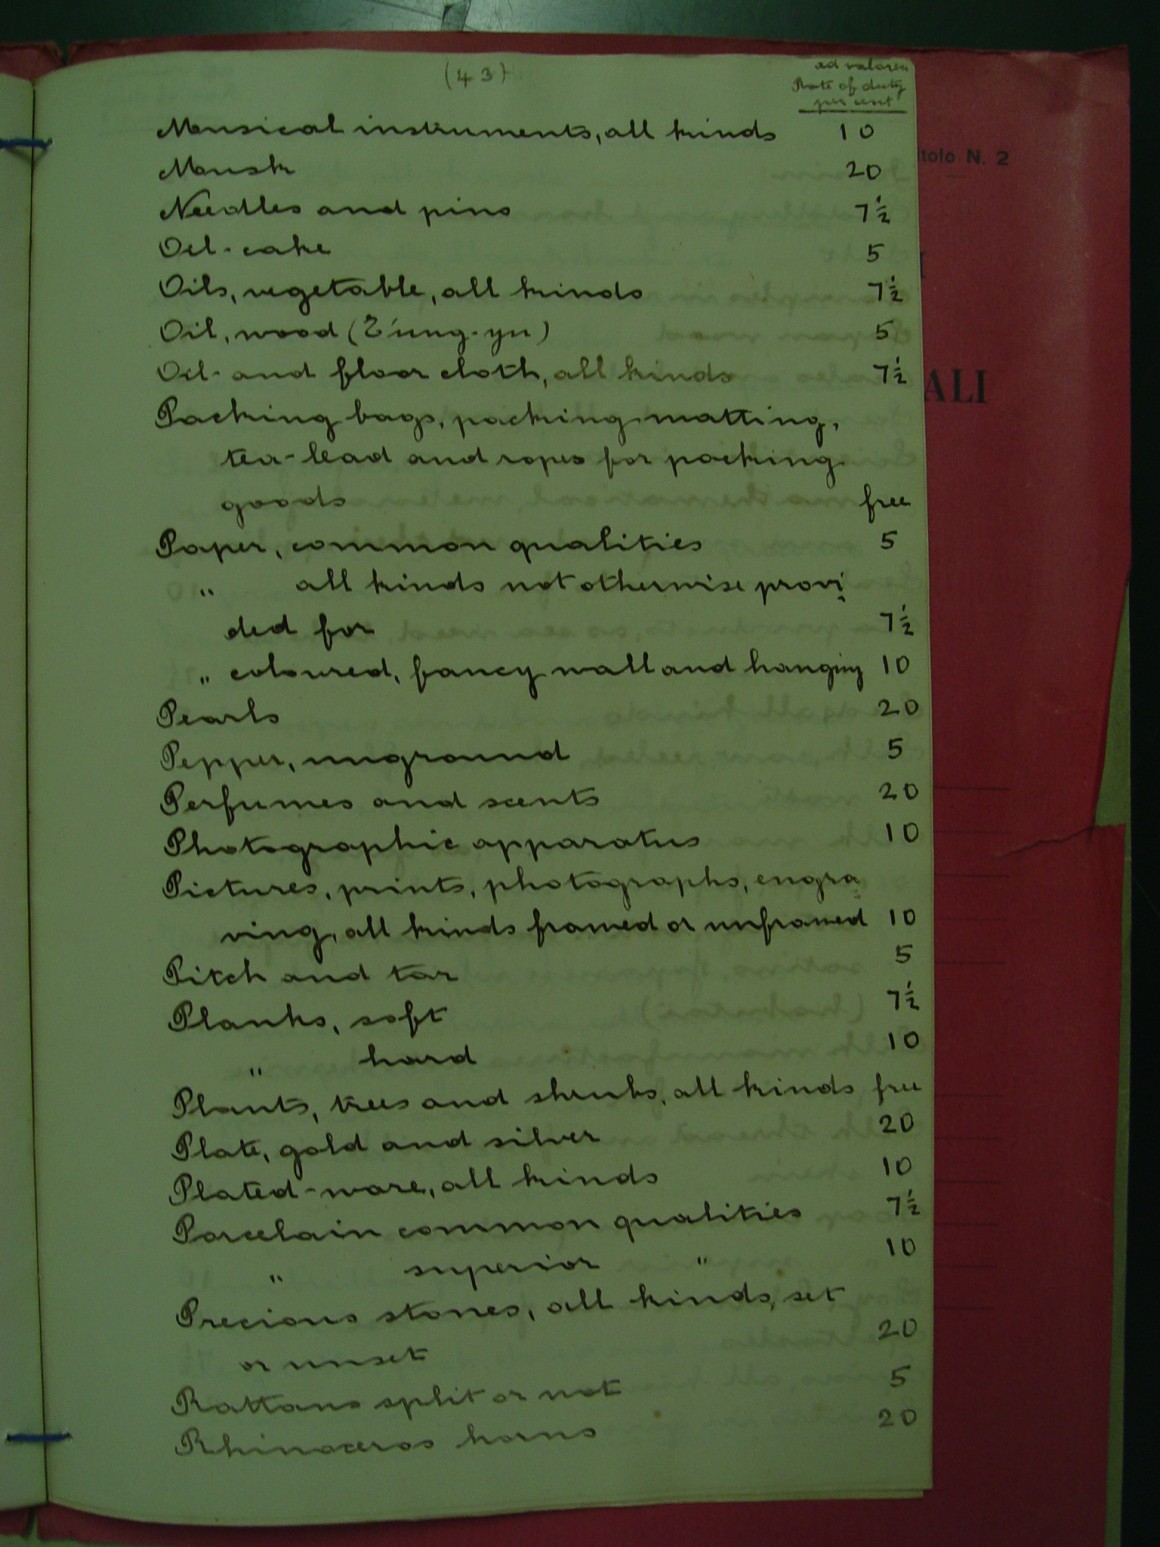 (43)
ad valorem
Rate of duty
per cent
Musical instruments, all kinds 10
Musk 20
Needles and pins 7½
Oil-cake 5
Oils, vegetable, all kinds 7½
Oil, wood (T'ung-yu) 5
Oil- and floor cloth, all kinds 7½
Packing bags, packing matting,
tea-lead and ropes for packing
goods free
Paper, common qualities 5
" all kinds not otherwise provi-
ded for 7½
" coloured, fancy wall and hanging 10
Pearls 20
Pepper, unground 5
Perfumes and scents 20
Photographic apparatus 10
Pictures, prints, photographs, engra-
ving, all kinds framed or unframed 10
Pitch and tar 5
Planks, soft 7½
" hard 10
Plants, trees and shrubs, all kinds free
Plate, gold and silver 20
Plated-ware, all kinds 10
Porcelain common qualities 7½
" superior " 10
Precious stones, all kinds, set
or unset 20
Rattans split or not 5
Rhinoceros horns 20
itolo N. 2
ALI